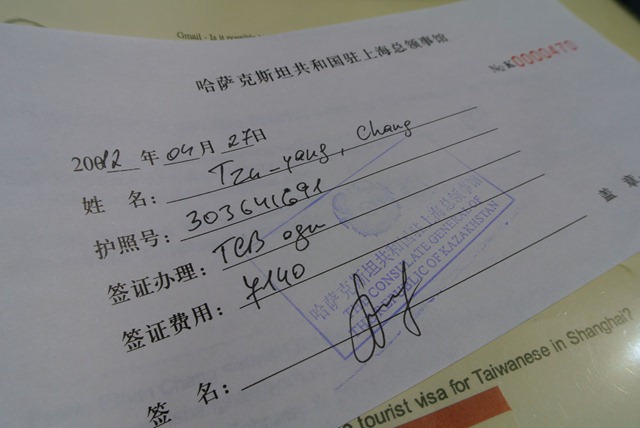 Gmail - Is it possible
哈萨克斯坦共和国驻上海总领事馆
№ K0000470
2012 年 04 月 27日
姓 名: Tzu-yang, Chang
护照号: 303641691
签证办理: TCB
签证费用: ¥140
盖 章
签 名:
哈萨克斯坦共和国驻上海总领事馆
THE CONSULATE GENERAL OF
THE REPUBLIC OF KAZAKHSTAN
tourist visa for Taiwanese in Shanghai?